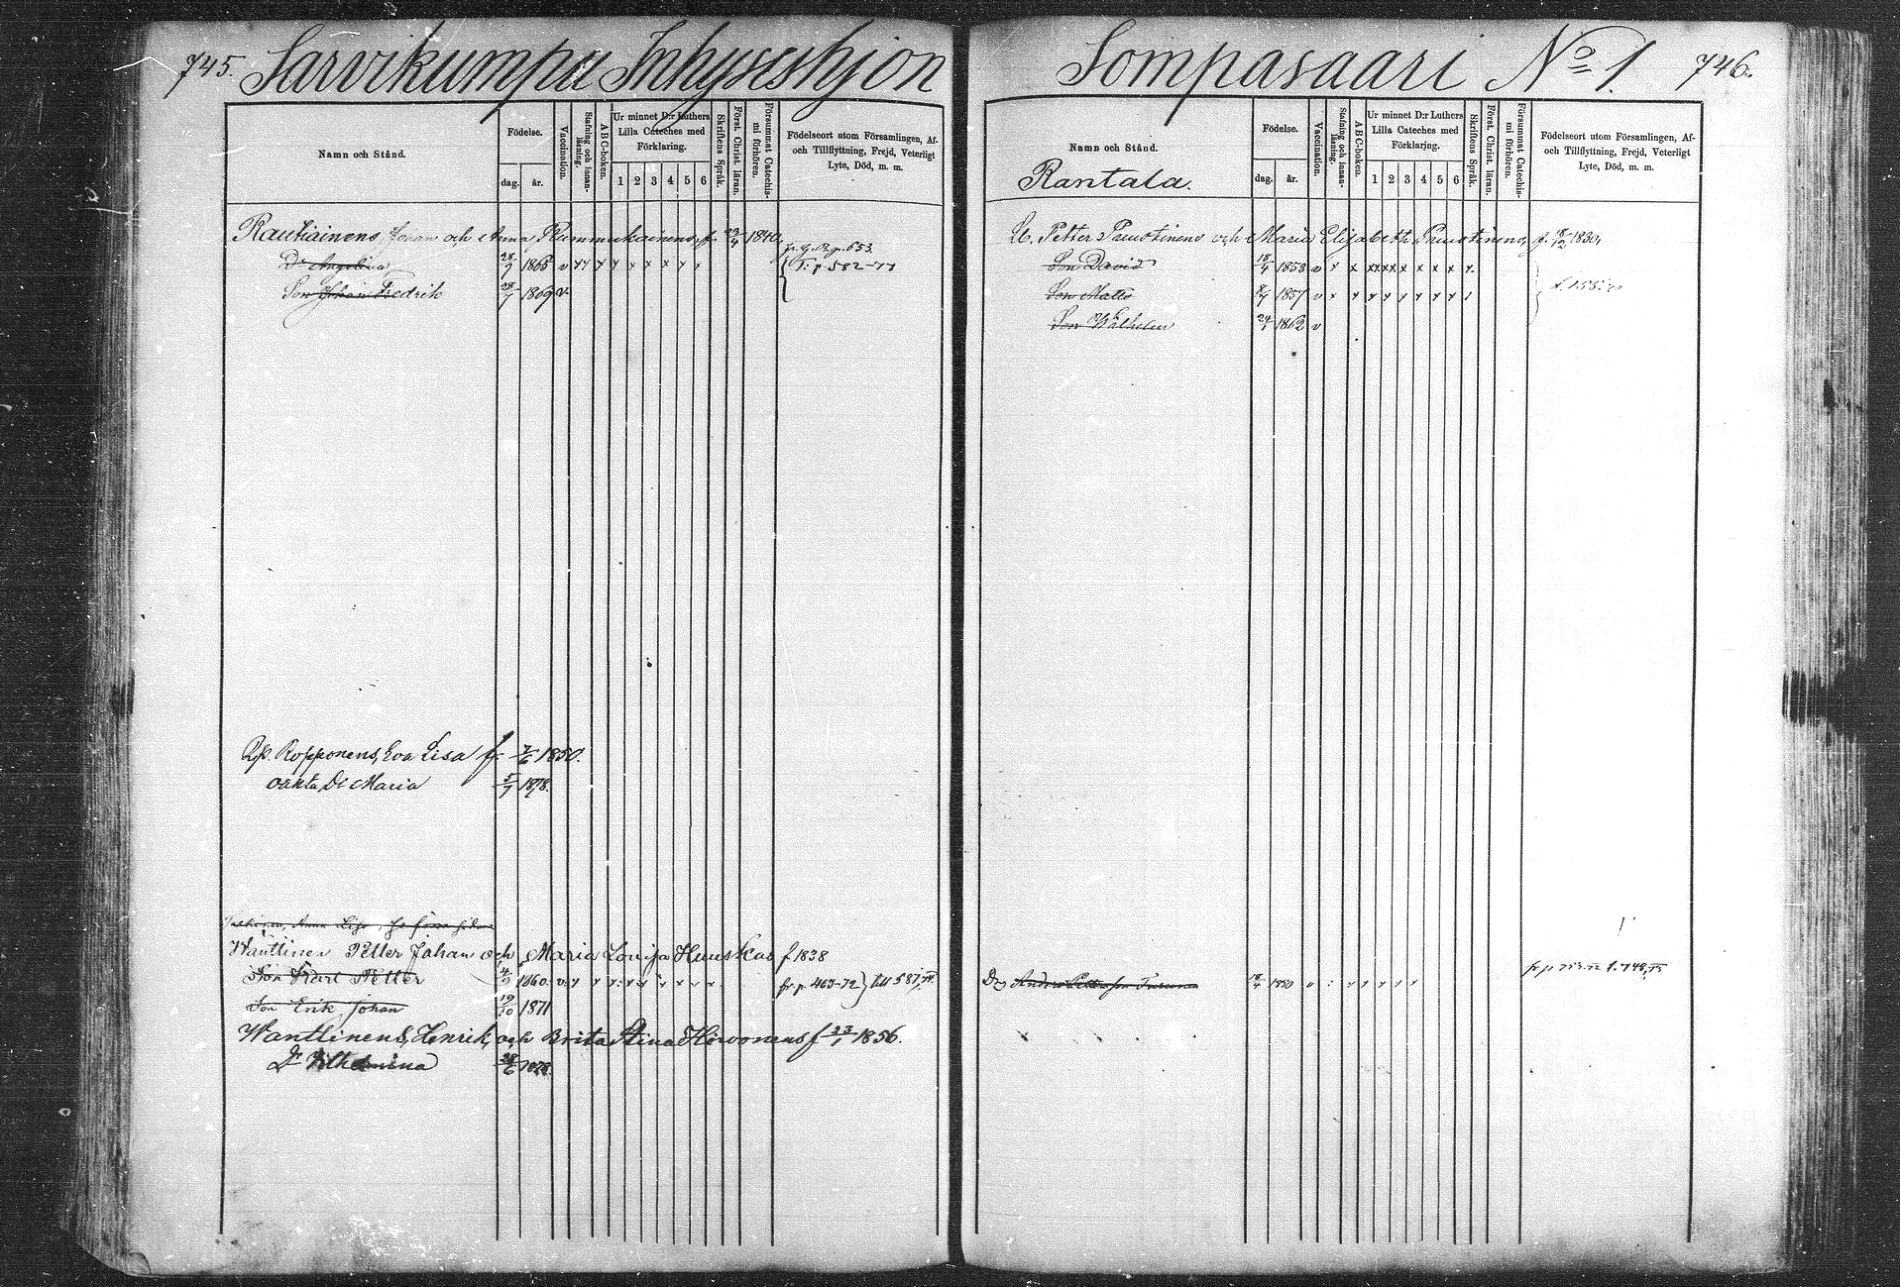 745. Sarvikumpu Inhyseshjon
Namn och Stånd.
Födelse.
dag.
år.
Vaccination.
Stafning och innan-
läsning.
A B C-boken.
Ur minnet D:r Luthers
Lilla Cateches med
Förklaring.
1 2 3 4 5 6
Skriftens Språk.
Först. Christ. läran.
Försummat Catechis-
mi förhören.
Födelseort utom Församlingen, Af-
och Tillflyttning, Frejd, Veterligt
Lyte, Död, m. m.
Rautiainens, Johan och Anna Rummukainens, f. 23/4 1840,
fr. g. B. p. 653
Dr Angelina 28/9 1865 v
T. p. 582-77
Son Johan Fredrik 28/7 1869 v.
Rp. Ropponens, Eva Lisa f. 7/6 1850.
oäkta Dr Maria 5/7 1878.
Anna Lisa
Wänttinen Petter Johan och Maria Lovisa Huuskas f 1838
Son Karl Petter 4/9 1860. v. fr. p. 463-72 } till 581,
Son Erik Johan 19/10 1871
Wänttinens, Henrik, och Brita Stina Hirvonens f 23/1 1856.
Dr Vilhelmina 28/6 1878.
Sompasaari No 1. 746.
Namn och Stånd.
Rantala.
Födelse.
dag.
år.
Vaccination.
Stafning och innan-
läsning.
A B C-boken.
Ur minnet D:r Luthers
Lilla Cateches med
Förklaring.
1 2 3 4 5 6
Skriftens Språk.
Först. Christ. läran.
Försummat Catechis-
mi förhören.
Födelseort utom Församlingen, Af-
och Tillflyttning, Frejd, Veterligt
Lyte, Död, m. m.
U. Petter Pruustinens och Maria Elisabeth Pruustinens, f. 18/12 1830,
Son David 18/4 1853 v
Son Matts 8/7 1857 v
Son Wilhelm 29/1 1862 v
Dr Anders Petter 18/4 1850 v